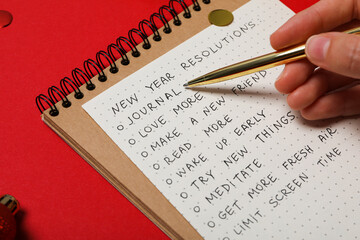 NEW YEAR RESOLUTIONS:
o JOURNAL
o LOVE MORE
o MAKE A NEW FRIEND
o READ MORE
o WAKE UP EARLY
o TRY NEW THINGS
o MEDITATE
o GET MORE FRESH AIR
o LIMIT SCREEN TIME